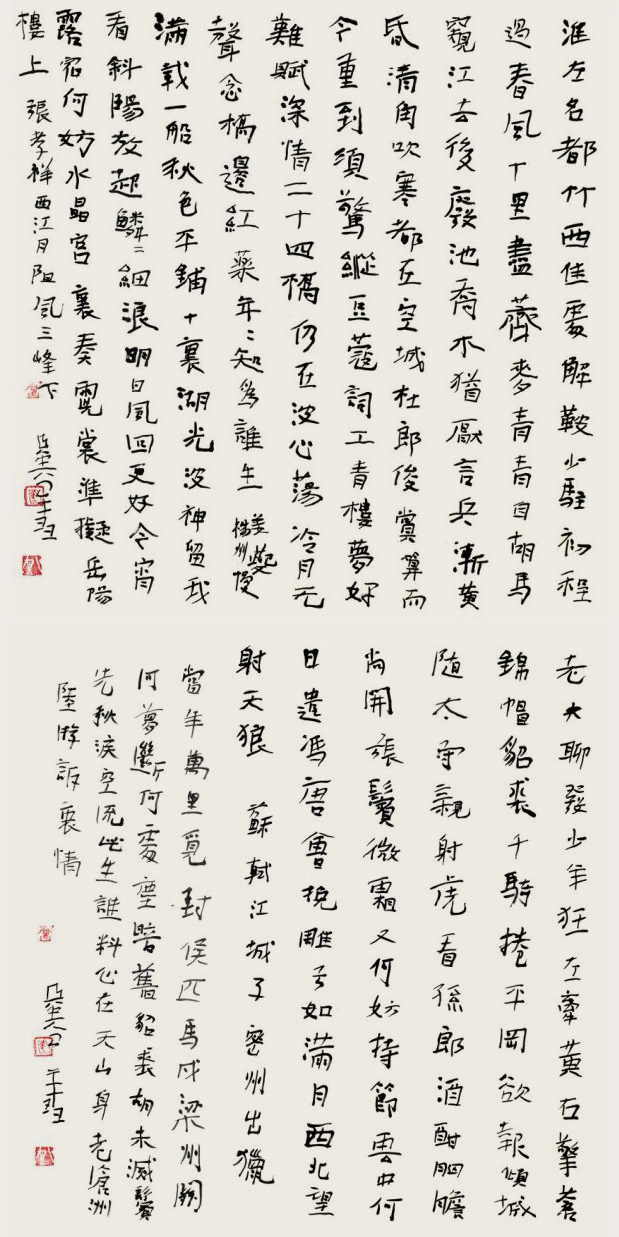 淮左名都竹西佳處解鞍少駐初程
過春風十里盡薺麥青青自胡馬
窺江去後廢池喬木猶厭言兵漸黃
昏清角吹寒都在空城杜郎俊賞算而
今重到須驚縱豆蔻詞工青樓夢好
難賦深情二十四橋仍在波心蕩冷月无
聲念橋邊紅藥年〻知為誰生 姜夔揚州慢
滿載一船秋色平鋪十裏湖光波神留我
看斜陽放起鱗〻細浪明日風回更好今宵
露宿何妨水晶宮裏奏霓裳準擬岳陽
樓上 張孝祥西江月阻風三峰下
老大聊發少年狂左牽黃右擎蒼
錦帽貂裘千騎捲平岡欲報傾城
隨太守親射虎看孫郎酒酣胸膽
尚開張鬢微霜又何妨持節雲中何
日遣馮唐會挽雕弓如滿月西北望
射天狼 蘇軾江城子密州出獵
當年萬里覓封侯匹馬戍梁州關
河夢斷何處塵暗舊貂裘胡未滅鬢
先秋淚空流此生誰料心在天山身老滄洲
陸游訴衷情